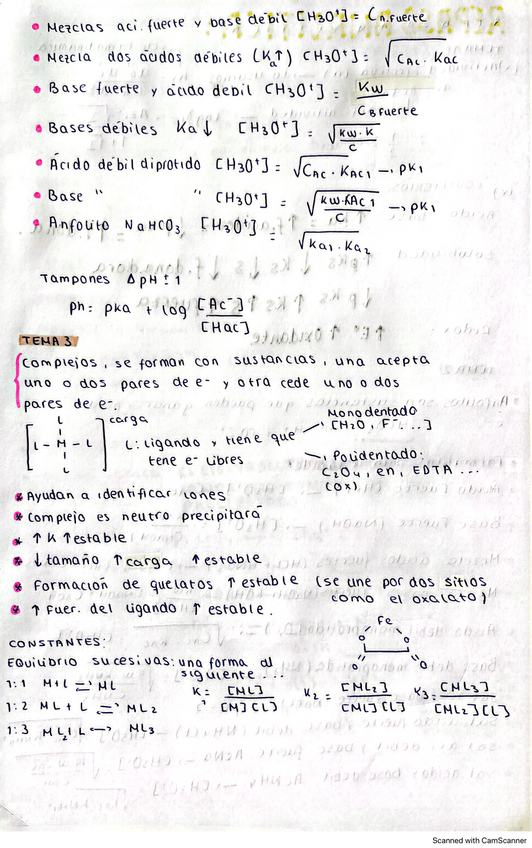 • Mezclas aci. fuerte y base débil [H3O⁺] = Cn.fuerte
• Mezcla dos ácidos débiles (Ka↑) [H3O⁺] = √CAC . KAC
• Base fuerte y ácido débil [H3O⁺] = Kw / CBfuerte
• Bases débiles Ka↓ [H3O⁺] = √(Kw.K / C)
• Ácido débil diprotido [H3O⁺] = √CAC . KAC1 → pK1
• Base " " [H3O⁺] = √(Kw.KAC1 / C) → pK1
• Anfolito NaHCO3 [H3O⁺] = √Ka1 . Ka2
Tampones ΔpH ± 1
pH = pKa + log [Ac⁻] / [HAc]
TEMA 3
Complejos, se forman con sustancias, una acepta
uno o dos pares de e- y otra cede uno o dos
pares de e-.
[L - M - L] carga
L
L
L: ligando, tiene que
tene e- libres
Monodentado
[H2O, F⁻...]
Polidentado:
C2O4, en, EDTA ...
(ox)
* Ayudan a identificar iones
* Complejo es neutro precipitará
* ↑ K ↑ estable
* ↓ tamaño ↑ carga ↑ estable
* Formación de quelatos ↑ estable (se une por dos sitios
como el oxalato)
* ↑ Fuer. del ligando ↑ estable.
Fe
O O
O O
CONSTANTES:
Equilibrio sucesivas: una forma al
siguiente ...
1:1 M+L ⇌ ML K1 = [ML] / [M][L] K2 = [ML2] / [ML][L] K3 = [ML3] / [ML2][L]
1:2 ML + L ⇌ ML2
1:3 ML2+L ⇌ ML3
Scanned with CamScanner